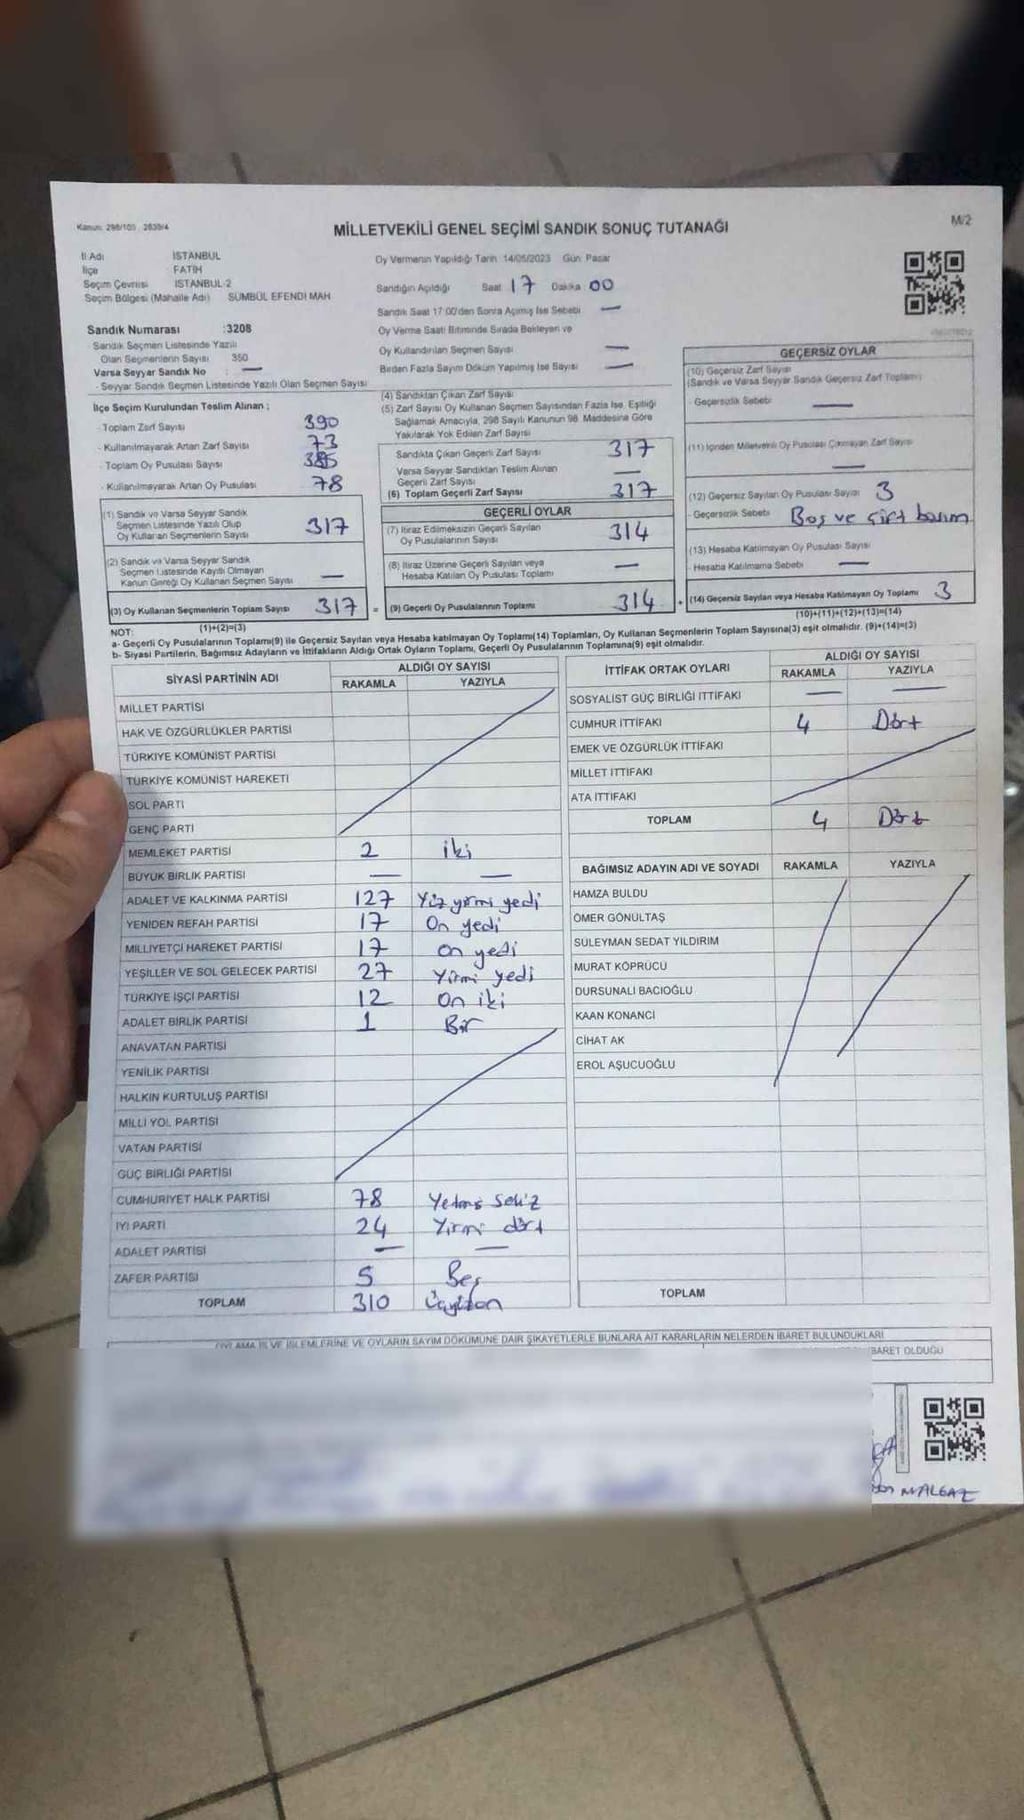 Kanun: 298/105 , 2839/4
MİLLETVEKİLİ GENEL SEÇİMİ SANDIK SONUÇ TUTANAĞI
M/2
İl Adı İSTANBUL
İlçe FATİH
Seçim Çevresi İSTANBUL-2
Seçim Bölgesi (Mahalle Adı) SÜMBÜL EFENDİ MAH
Oy Vermenin Yapıldığı Tarih 14/05/2023 Gün: Pazar
Sandığın Açıldığı Saat 17 Dakika 00
Sandık Saat 17:00'den Sonra Açılmış İse Sebebi —
Oy Verme Saati Bitiminde Sırada Bekleyen ve
Oy Kullandırılan Seçmen Sayısı —
Birden Fazla Sayım Döküm Yapılmış İse Sayısı —
Sandık Numarası :3208
- Sandık Seçmen Listesinde Yazılı
Olan Seçmenlerin Sayısı 350
Varsa Seyyar Sandık No : —
- Seyyar Sandık Seçmen Listesinde Yazılı Olan Seçmen Sayısı
İlçe Seçim Kurulundan Teslim Alınan ;
- Toplam Zarf Sayısı 390
- Kullanılmayarak Artan Zarf Sayısı 73
- Toplam Oy Pusulası Sayısı 385
- Kullanılmayarak Artan Oy Pusulası 78
(1) Sandık ve Varsa Seyyar Sandık
Seçmen Listesinde Yazılı Olup
Oy Kullanan Seçmenlerin Sayısı 317
(2) Sandık ve Varsa Seyyar Sandık
Seçmen Listesinde Kayıtlı Olmayan
Kanun Gereği Oy Kullanan Seçmen Sayısı —
(3) Oy Kullanan Seçmenlerin Toplam Sayısı 317 =
(1)+(2)=(3)
(4) Sandıktan Çıkan Zarf Sayısı
(5) Zarf Sayısı Oy Kullanan Seçmen Sayısından Fazla İse, Eşitliği
Sağlamak Amacıyla, 298 Sayılı Kanunun 98. Maddesine Göre
Yakılarak Yok Edilen Zarf Sayısı
Sandıkta Çıkan Geçerli Zarf Sayısı 317
Varsa Seyyar Sandıktan Teslim Alınan
Geçerli Zarf Sayısı —
(6) Toplam Geçerli Zarf Sayısı 317
GEÇERLİ OYLAR
(7) İtiraz Edilmeksizin Geçerli Sayılan
Oy Pusulalarının Sayısı 314
(8) İtiraz Üzerine Geçerli Sayılan veya
Hesaba Katılan Oy Pusulası Toplamı —
(9) Geçerli Oy Pusulalarının Toplamı 314 +
GEÇERSİZ OYLAR
(10) Geçersiz Zarf Sayısı
(Sandık ve Varsa Seyyar Sandık Geçersiz Zarf Toplamı)
- Geçersizlik Sebebi —
(11) İçinden Milletvekili Oy Pusulası Çıkmayan Zarf Sayısı
—
(12) Geçersiz Sayılan Oy Pusulası Sayısı 3
- Geçersizlik Sebebi Boş ve çift basım
(13) Hesaba Katılmayan Oy Pusulası Sayısı
- Hesaba Katılmama Sebebi —
(14) Geçersiz Sayılan veya Hesaba Katılmayan Oy Toplamı 3
(10)+(11)+(12)+(13)=(14)
NOT:
a- Geçerli Oy Pusulalarının Toplamı(9) ile Geçersiz Sayılan veya Hesaba katılmayan Oy Toplamı(14) Toplamları, Oy Kullanan Seçmenlerin Toplam Sayısına(3) eşit olmalıdır. (9)+(14)=(3)
b- Siyasi Partilerin, Bağımsız Adayların ve İttifakların Aldığı Ortak Oyların Toplamı, Geçerli Oy Pusulalarının Toplamına(9) eşit olmalıdır.
SİYASİ PARTİNİN ADI
ALDIĞI OY SAYISI
RAKAMLA YAZIYLA
MİLLET PARTİSİ
HAK VE ÖZGÜRLÜKLER PARTİSİ
TÜRKİYE KOMÜNİST PARTİSİ
TÜRKİYE KOMÜNİST HAREKETİ
SOL PARTİ
GENÇ PARTİ
MEMLEKET PARTİSİ 2 iki
BÜYÜK BİRLİK PARTİSİ — —
ADALET VE KALKINMA PARTİSİ 127 Yüz yirmi yedi
YENİDEN REFAH PARTİSİ 17 On yedi
MİLLİYETÇİ HAREKET PARTİSİ 17 on yedi
YEŞİLLER VE SOL GELECEK PARTİSİ 27 Yirmi yedi
TÜRKİYE İŞÇİ PARTİSİ 12 On iki
ADALET BİRLİK PARTİSİ 1 Bir
ANAVATAN PARTİSİ
YENİLİK PARTİSİ
HALKIN KURTULUŞ PARTİSİ
MİLLİ YOL PARTİSİ
VATAN PARTİSİ
GÜÇ BİRLİĞİ PARTİSİ
CUMHURİYET HALK PARTİSİ 78 Yetmiş sekiz
İYİ PARTİ 24 Yirmi dört
ADALET PARTİSİ — —
ZAFER PARTİSİ 5 Beş
TOPLAM 310 Üçyüzon
İTTİFAK ORTAK OYLARI
ALDIĞI OY SAYISI
RAKAMLA YAZIYLA
SOSYALİST GÜÇ BİRLİĞİ İTTİFAKI — —
CUMHUR İTTİFAKI 4 Dört
EMEK VE ÖZGÜRLÜK İTTİFAKI
MİLLET İTTİFAKI
ATA İTTİFAKI
TOPLAM 4 Dört
BAĞIMSIZ ADAYIN ADI VE SOYADI RAKAMLA YAZIYLA
HAMZA BULDU
ÖMER GÖNÜLTAŞ
SÜLEYMAN SEDAT YILDIRIM
MURAT KÖPRÜCÜ
DURSUNALİ BACIOĞLU
KAAN KONANCI
CİHAT AK
EROL AŞUCUOĞLU
TOPLAM
OYLAMA İŞ VE İŞLEMLERİNE VE OYLARIN SAYIM DÖKÜMÜNE DAİR ŞİKAYETLERLE BUNLARA AİT KARARLARIN NELERDEN İBARET BULUNDUKLARI
BARET OLDUĞU
MALGAZ